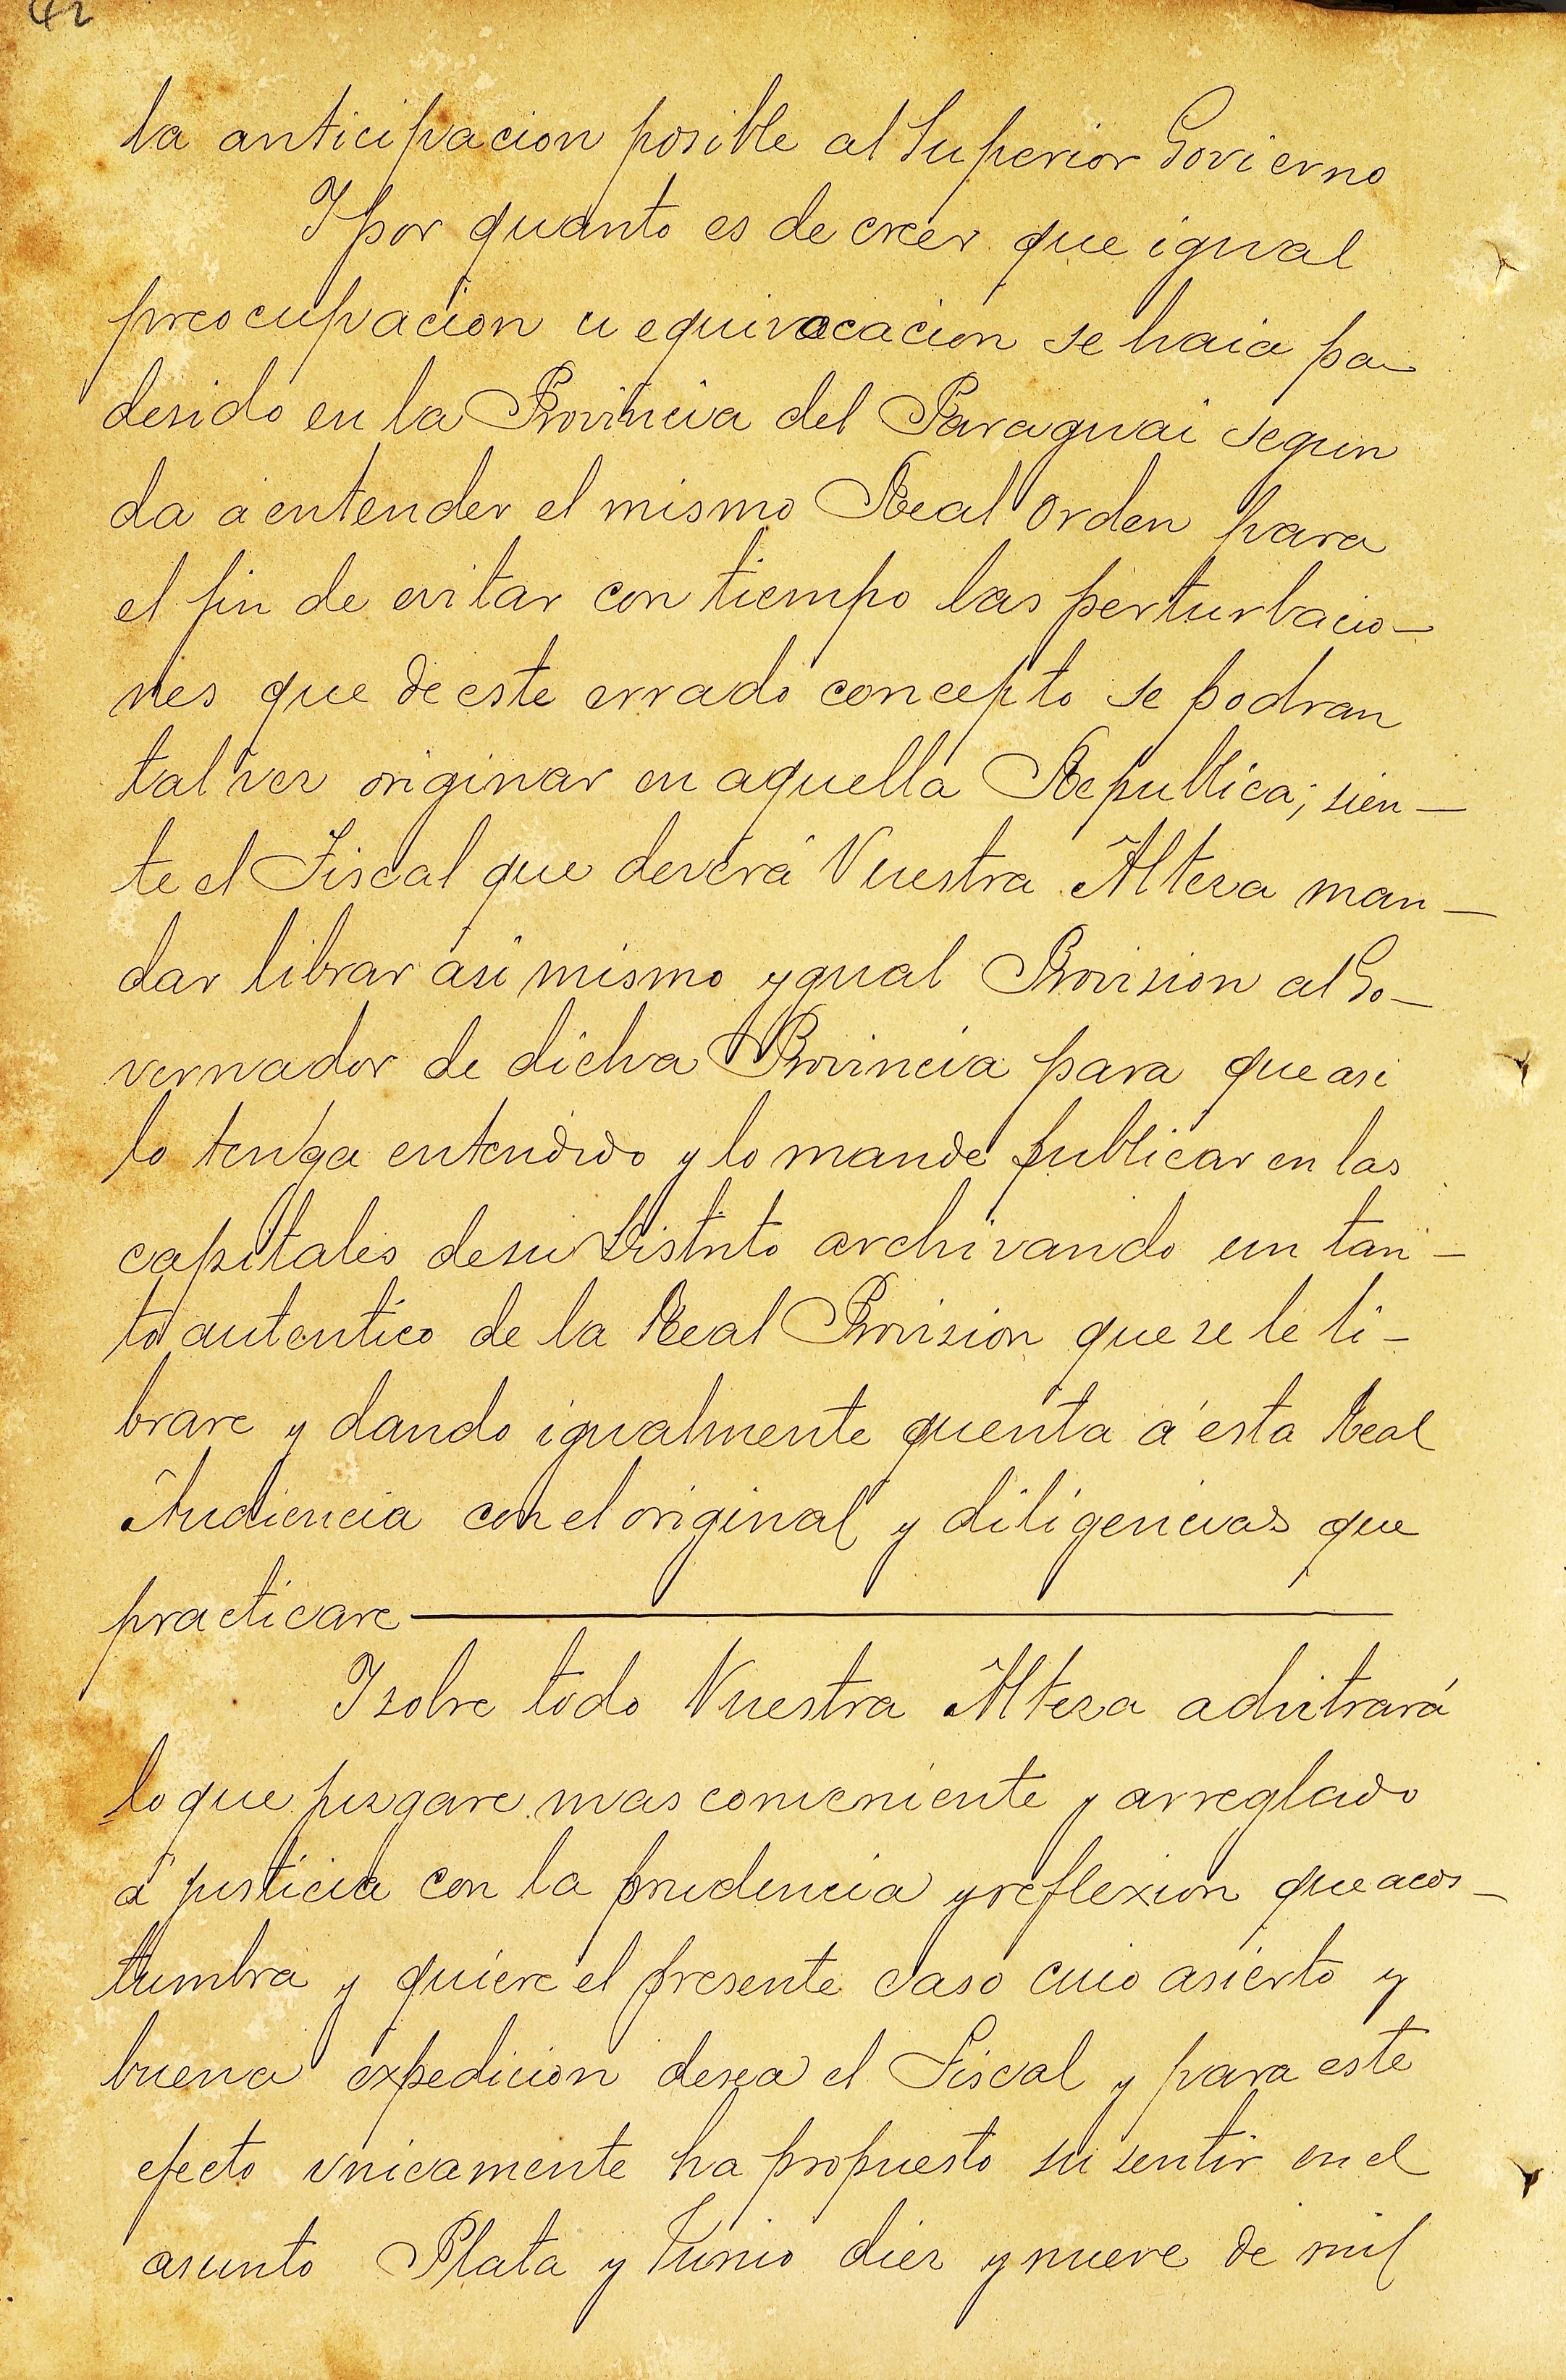 42
la anticipacion posible al Superior Govierno
I por quanto es de creer que igual
preocupacion u equivocacion se haia pa-
desido en la Provincia del Paraguai segun
da á entender el mismo Real Orden para
el fin de evitar con tiempo las perturbacio-
nes que de este errado concepto se podran
tal vez originar en aquella Republica; sien-
te el Fiscal que deverá Vuestra Alteza man-
dar librar asi mismo ygual Provision al Go-
vernador de dicha Provincia para que asi
lo tenga entendido y lo mande publicar en las
capitales de su Distrito archivando un tan-
to autentico de la Real Provision que se le li-
brare y dando igualmente quenta á esta Real
Audiencia con el original y diligencias que
practicare
I sobre todo Vuestra Alteza advitrará
lo que juzgare mas conveniente y arreglado
á justicia con la prudencia y reflexion que acos-
tumbra y quiere el presente caso cuio asierto y
buena expedicion desea el Fiscal y para este
efecto unicamente ha propuesto su sentir en el
asunto Plata y Junio diez y nueve de mil